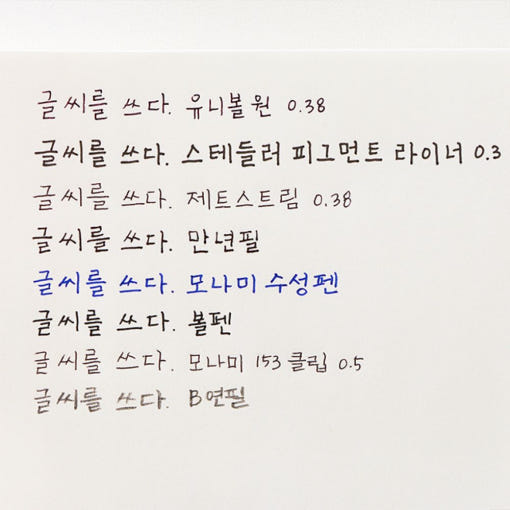 글씨를 쓰다. 유니볼 원 0.38
글씨를 쓰다. 스테들러 피그먼트 라이너 0.3
글씨를 쓰다. 제트스트림 0.38
글씨를 쓰다. 만년필
글씨를 쓰다. 모나미 수성펜
글씨를 쓰다. 볼펜
글씨를 쓰다. 모나미 153 클립 0.5
글씨를 쓰다. B연필